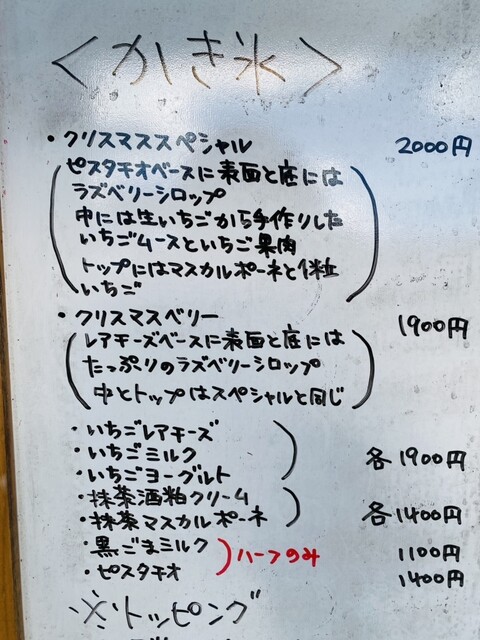 <かき氷>
・クリスマススペシャル 2000円
(ピスタチオベースに表面と底には
ラズベリーシロップ
中には生いちごから手作りした
いちごムースといちご果肉
トップにはマスカルポーネと1粒
いちご)
・クリスマスベリー 1900円
(レアチーズベースに表面と底には
たっぷりのラズベリーシロップ
中とトップはスペシャルと同じ)
・いちごレアチーズ
・いちごミルク
・いちごヨーグルト
) 各1900円
・抹茶酒粕クリーム
・抹茶マスカルポーネ
) 各1400円
・黒ごまミルク 1100円
・ピスタチオ 1400円
)ハーフのみ
※トッピング